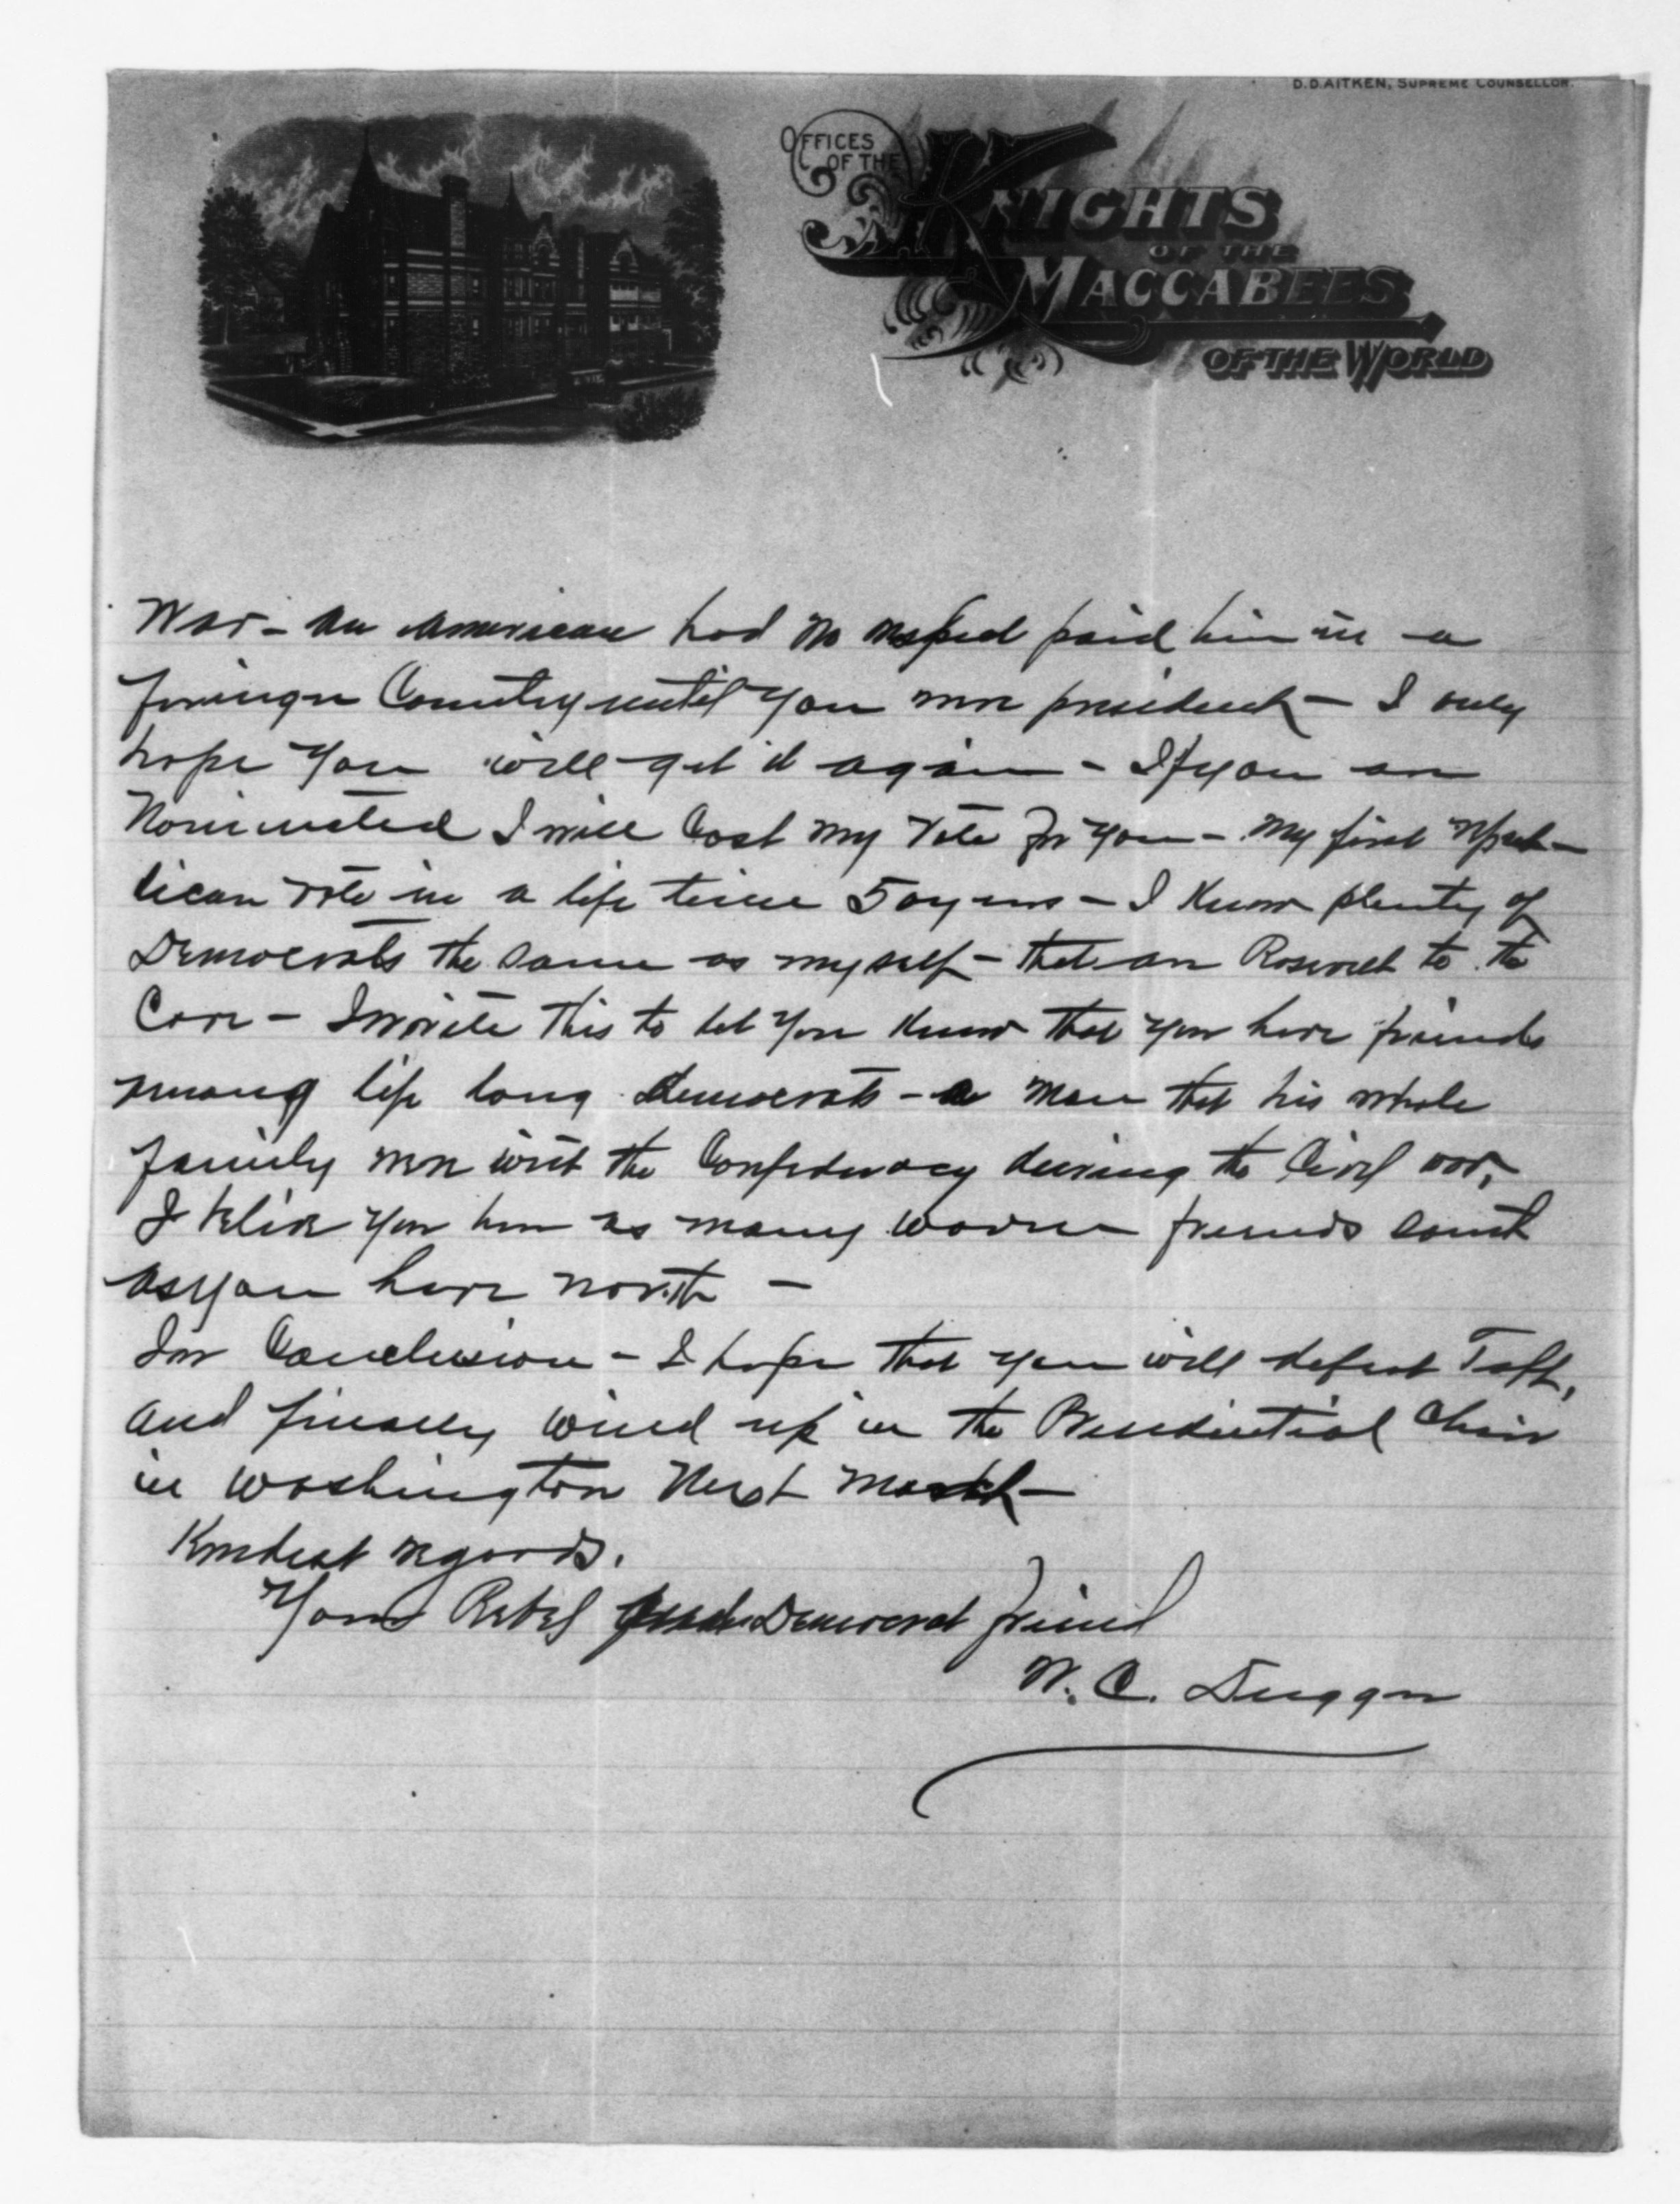 D. D. AITKEN, SUPREME COUNSELLOR.
OFFICES
OF THE
KNIGHTS
OF THE
MACCABEES
OF THE WORLD
War - An American had no respect paid him in a
foreign Country until you were president - I only
hope you will get it again - If you are
Nominated I will Cast my Vote for you - My first repub-
lican vote in a life time 50 years - I know plenty of
Democrats the same as myself - that are Rosevelt to the
Core - I write this to let you know that you have friends
among life long democrats - a man that his whole
family were with the Confederacy during the Civil war,
I belive you have as many warm friends south
as you have north -
In Conclusion - I hope that you will defeat Taft,
and finally wind up in the Presidential Chair
in Washington Next March -
Kindest regards.
Yours Rebel Democrat friend
W. C. Duggan